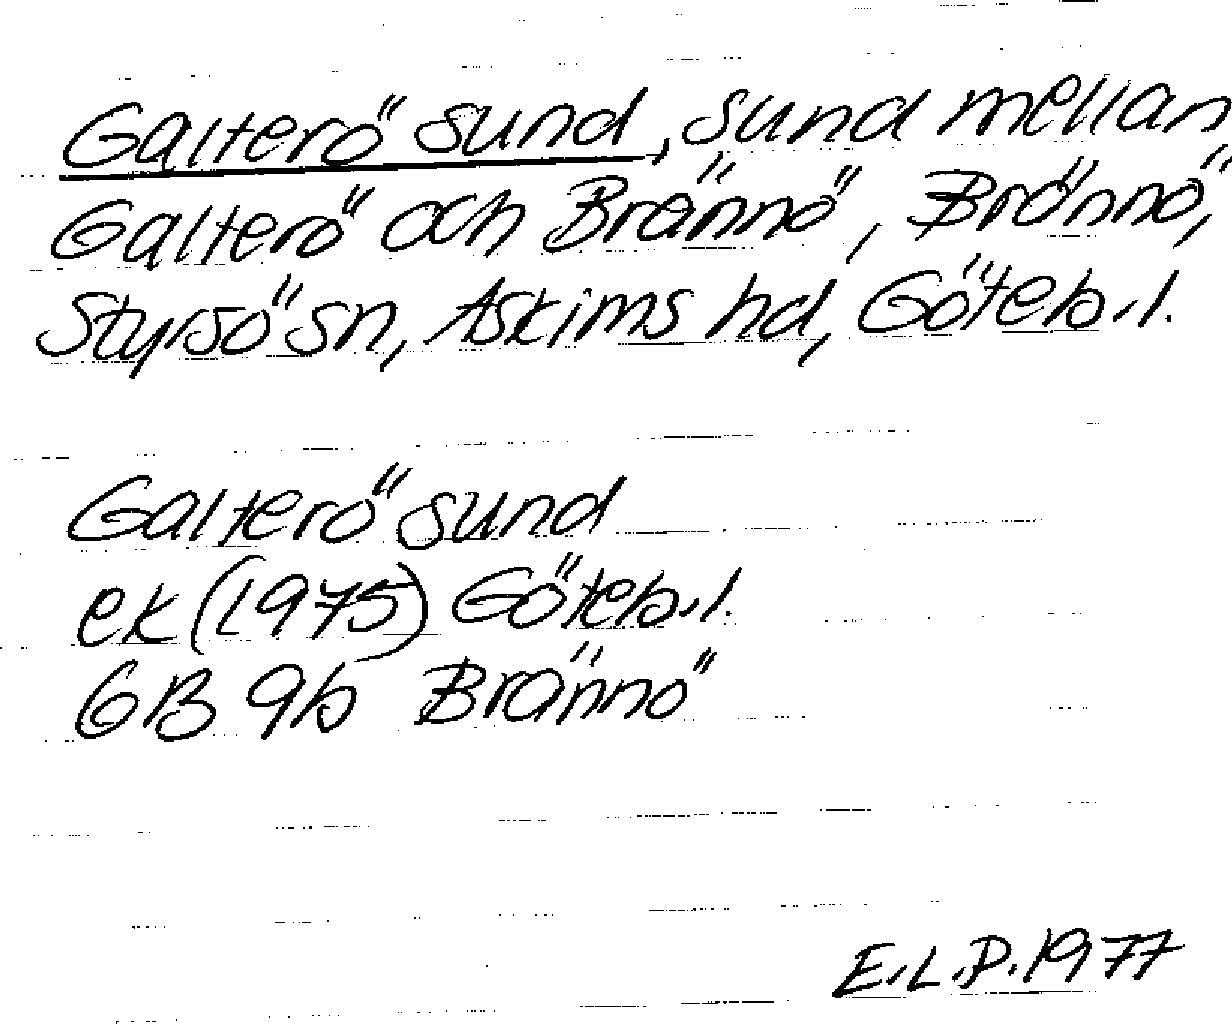 Galterö sund, sund mellan
Galterö och Brännö, Brännö,
Styrsö sn, Askims hd, Göteb.l.
Galterö sund
ek (1975) Göteb.l.
6B 9b Brännö
E.L.P. 1977